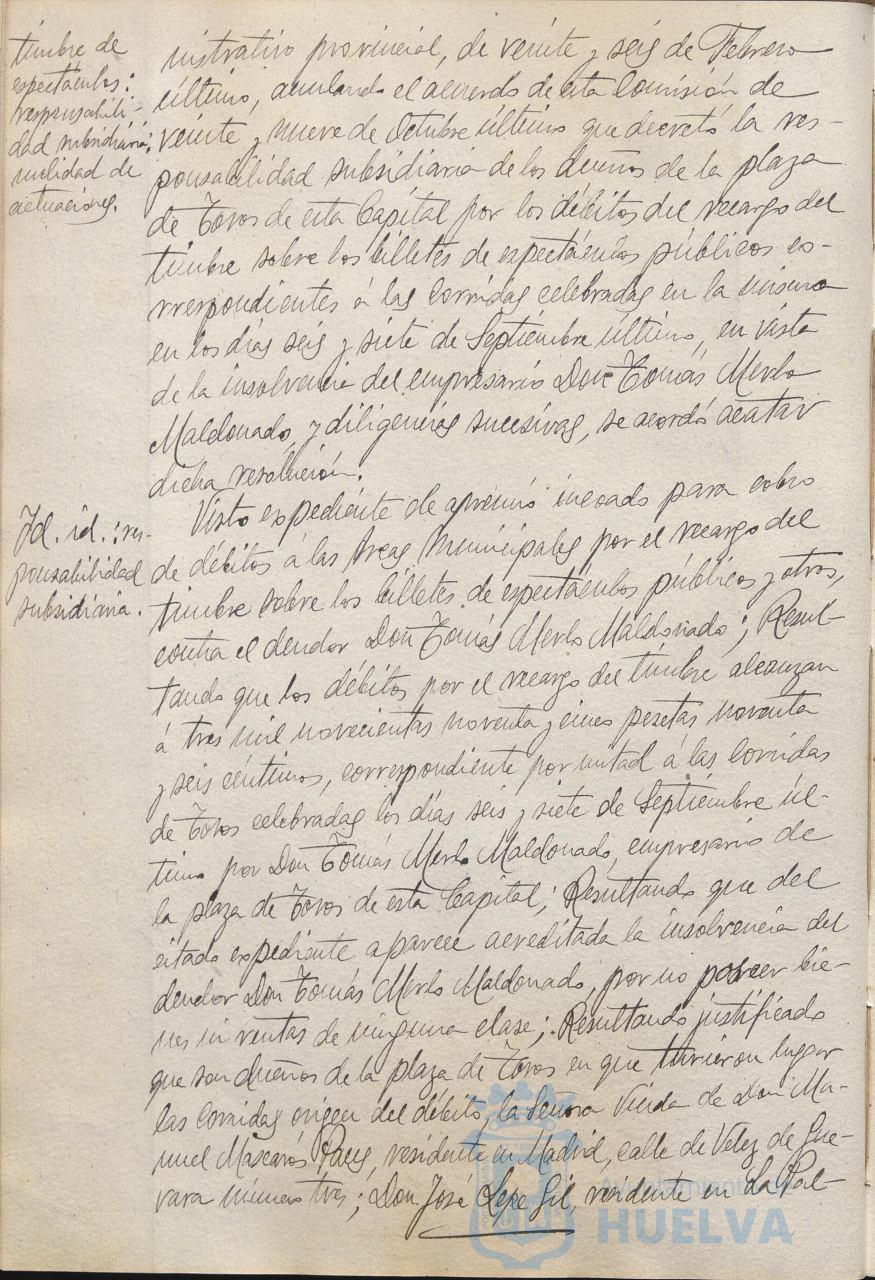 timbre de
espectáculos:
responsabili-
dad subsidiaria:
nulidad de
actuaciones.
nistrativo provincial, de veinte y seis de Febrero
último, anulando el acuerdo de esta Comisión de
veinte y nueve de Octubre último que decretó la res-
ponsabilidad subsidiaria de los dueños de la plaza
de Toros de esta Capital por los débitos del recargo del
timbre sobre los billetes de espectáculos públicos co-
rrespondientes á las corridas celebradas en la misma
en los días seis y siete de Septiembre último, en vista
de la insolvencia del empresario Don Tomás Merlo
Maldonado, y diligencias sucesivas, se acordó acatar
dicha resolución.
Id. id.: res-
ponsabilidad
subsidiaria.
Visto expediente de apremio incoado para cobro
de débitos á las Arcas Municipales por el recargo del
timbre sobre los billetes de espectáculos públicos y otros,
contra el deudor Don Tomás Merlo Maldonado; Resul-
tando que los débitos por el recargo del timbre alcanzan
á tres mil novecientas noventa y cinco pesetas noventa
y seis céntimos, correspondiente por mitad á las corridas
de Toros celebradas los días seis y siete de Septiembre úl-
timo por Don Tomás Merlo Maldonado, empresario de
la plaza de Toros de esta Capital; Resultando que del
citado expediente aparece acreditada la insolvencia del
deudor Don Tomás Merlo Maldonado, por no poseer bie-
nes ni rentas de ninguna clase; Resultando justificado
que son dueños de la plaza de Toros en que tuvieron lugar
las corridas origen del débito, la Señora Viuda de Don Ma-
nuel Mascarós, residente en Madrid, calle de Velez de Gue-
vara número tres; Don José Lepe Gil, residente en La Pal-
Ayuntamiento de
HUELVA